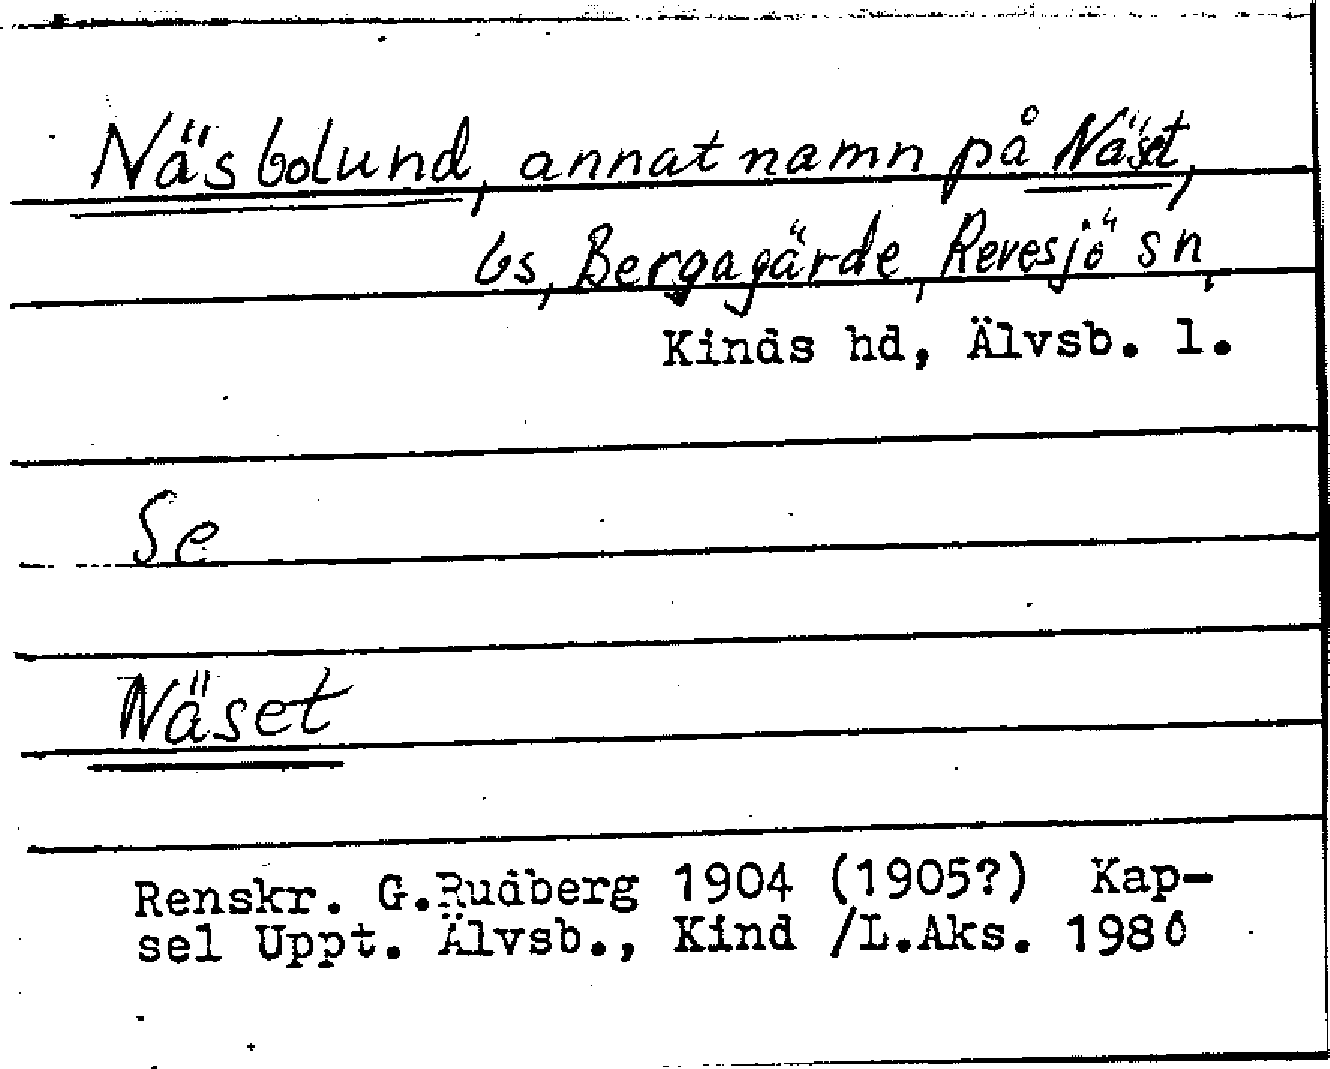 Näsbolund, annat namn på Näset,
bs, Bergagärde, Revesjö sn,
Kinds hd, Älvsb. l.
Se
Näset
Renskr. G.Rudberg 1904 (1905?) Kap-
sel Uppt. Älvsb., Kind /L.Aks. 1986